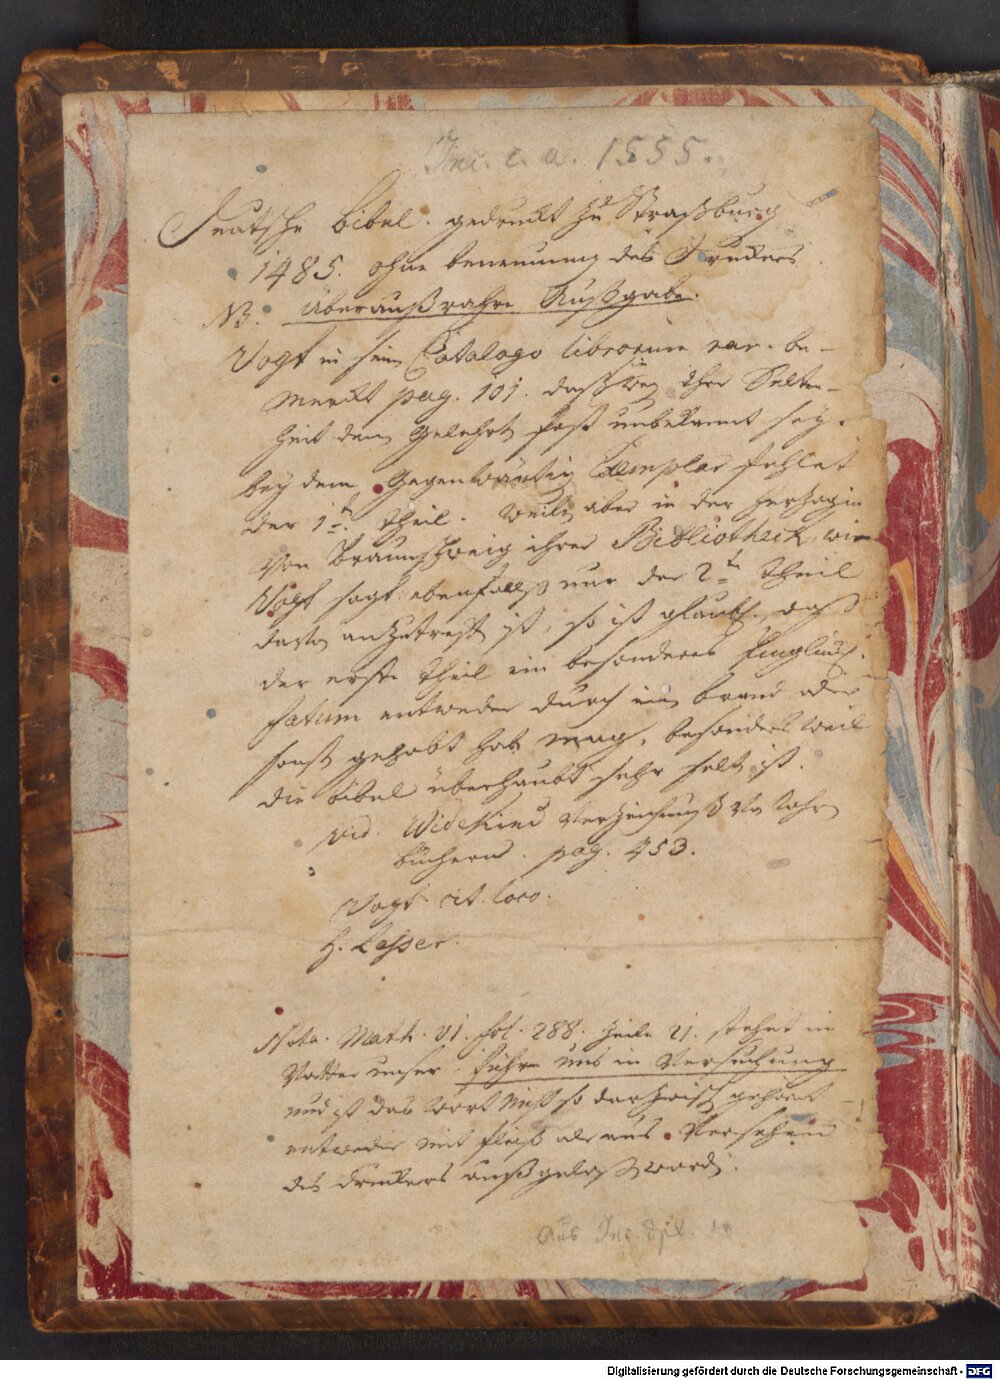 Inc. c. a. 1555.
Teutsche Bibel. gedruckt zu Straßburg
1485. ohne benennung des Druckers
NB. überaußrahre Außgabe.
Vogt in sein Catalogo librorum rar. be-
merckt pag. 101. daß sie weg ihrer Selten-
heit den Gelehrt fast unbekannt sey.
bey dem Gegenwärtig Exemplar fehlet
der 1te theil. weiln aber in der Herzogin
von Braunschweig ihrer Bibliotheck, wie
Vogt sagt ebenfalls nur der 2te theil
davon anzutreff ist, so ist glaubl., daß
der erste theil ein besonderes
fatum entweder durch ein brand oder
sonst gehabt hab mag, besonders weil
die bibel überhaubt sehr selt ist.
vid. Widekind Verzeichnuß von rahr
büchern. pag. 453.
Vogt. cit. loco.
H. Lesser.
Nota. Math. VI. fol. 288. Zeile 21. stehet im
Vatter unser. führe uns in Versuchung
und ist das Wort nicht so darzwisch gehört
entweder mit fleiß oder aus Versehen
des Druckers außgelaß word.
Aus Inc. dpl. 10
Digitalisierung gefördert durch die Deutsche Forschungsgemeinschaft - DFG